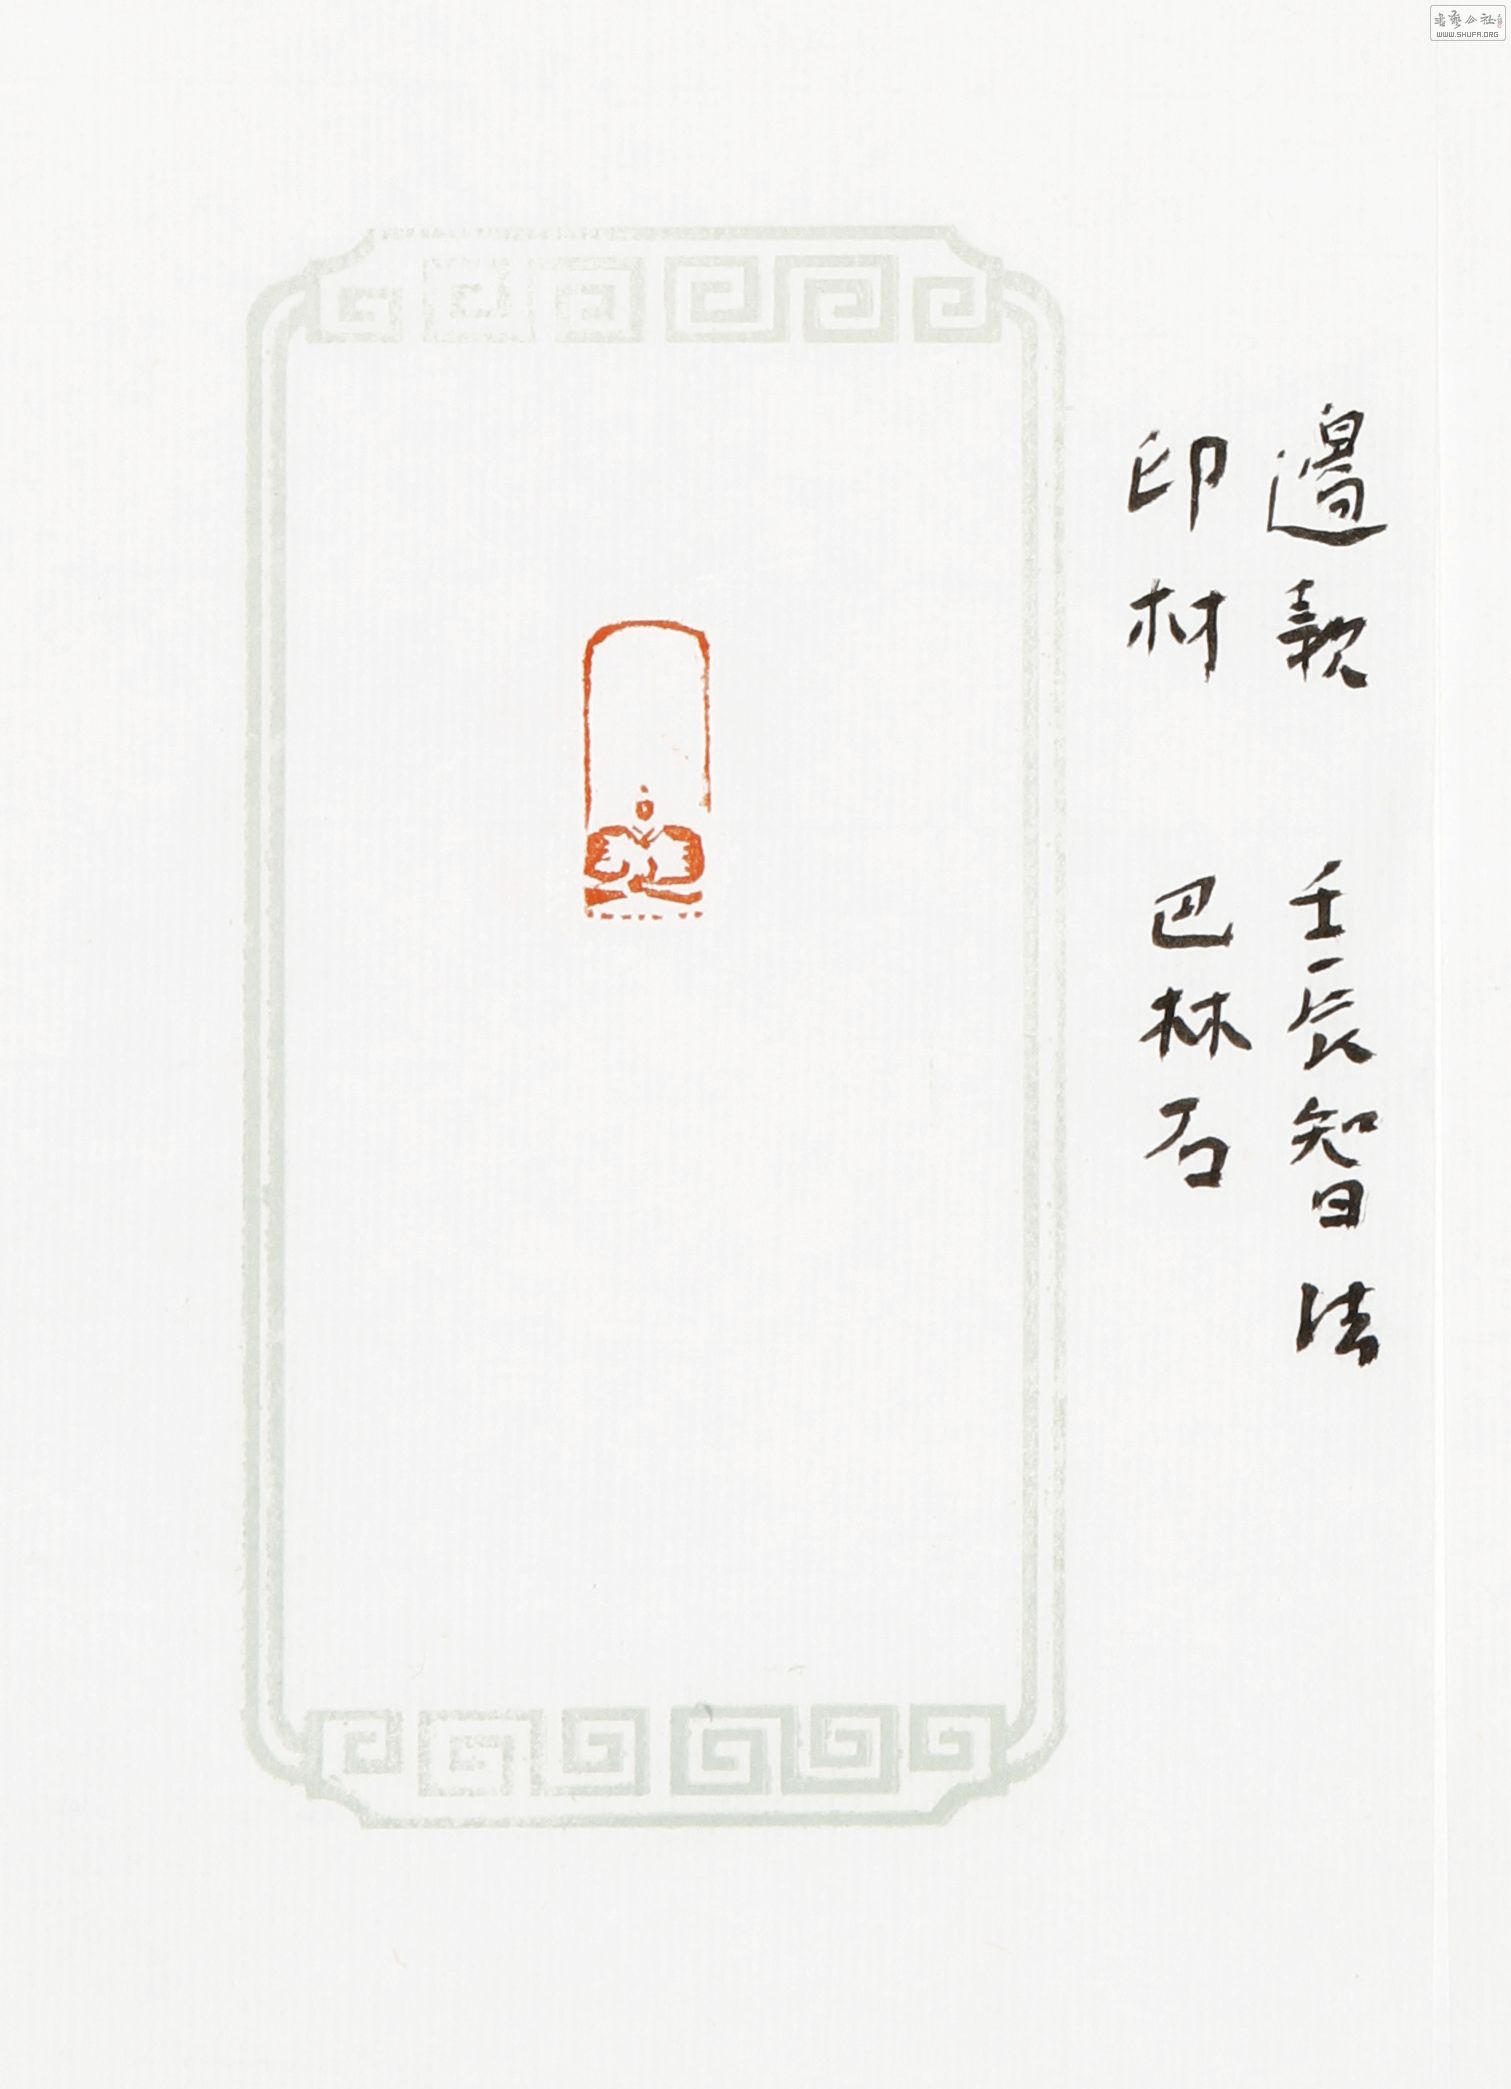 邊款 壬辰智法
印材 巴林石
書藝公社
WWW.SHUFA.ORG